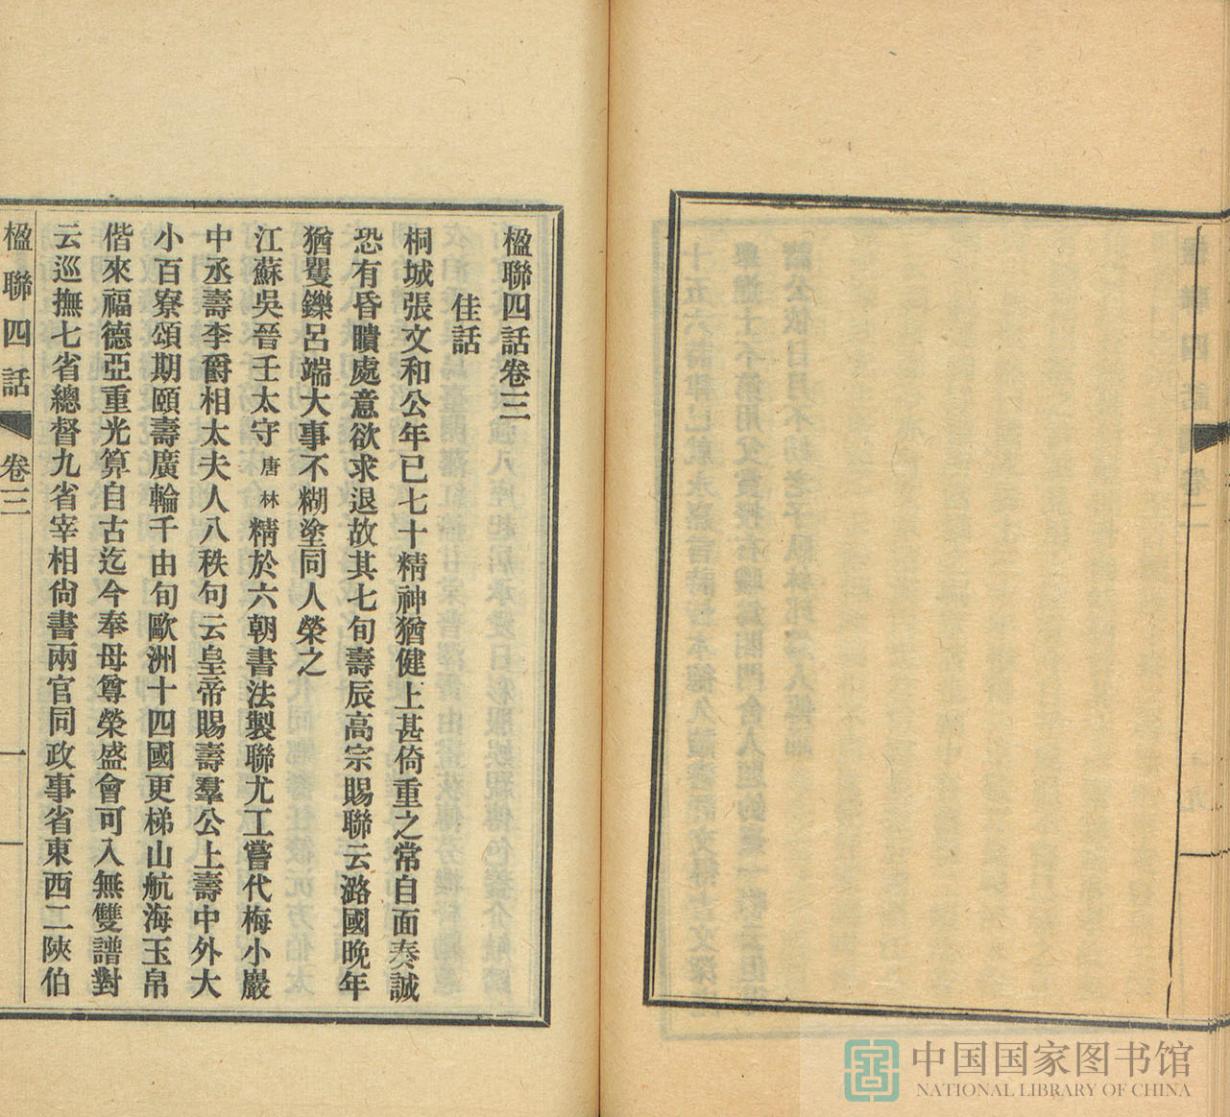 楹聯四話卷三
佳話
桐城張文和公年已七十精神猶健上甚倚重之常自面奏誠
恐有昏瞶處意欲求退故其七旬壽辰高宗賜聯云潞國晚年
猶矍鑠呂端大事不糊塗同人榮之
江蘇吳晉壬太守唐林精於六朝書法製聯尤工嘗代梅小巖
中丞壽李爵相太夫人八秩句云皇帝賜壽羣公上壽中外大
小百寮頌期頤壽廣輪千由旬歐洲十四國更梯山航海玉帛
偕來福德亞重光算自古迄今奉母尊榮盛會可入無雙譜對
云巡撫七省總督九省宰相尙書兩官同政事省東西二陝伯
楹聯四話 卷三 一
中国国家图书馆
NATIONAL LIBRARY OF CHINA